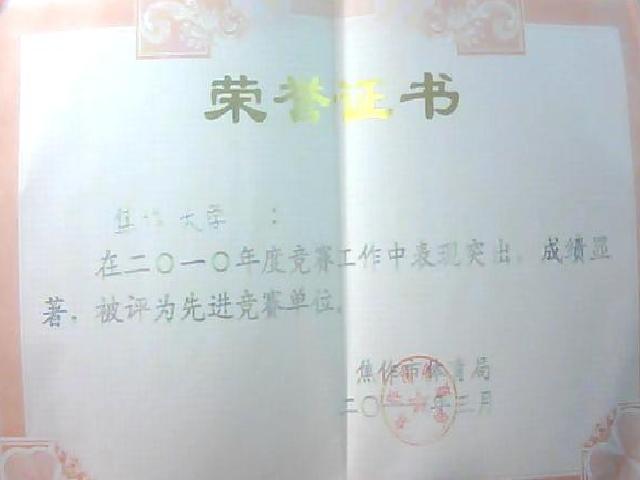 荣誉证书
焦作大学：
在二〇一〇年度竞赛工作中表现突出，成绩显
著，被评为先进竞赛单位。
焦作市体育局
二〇一一年三月